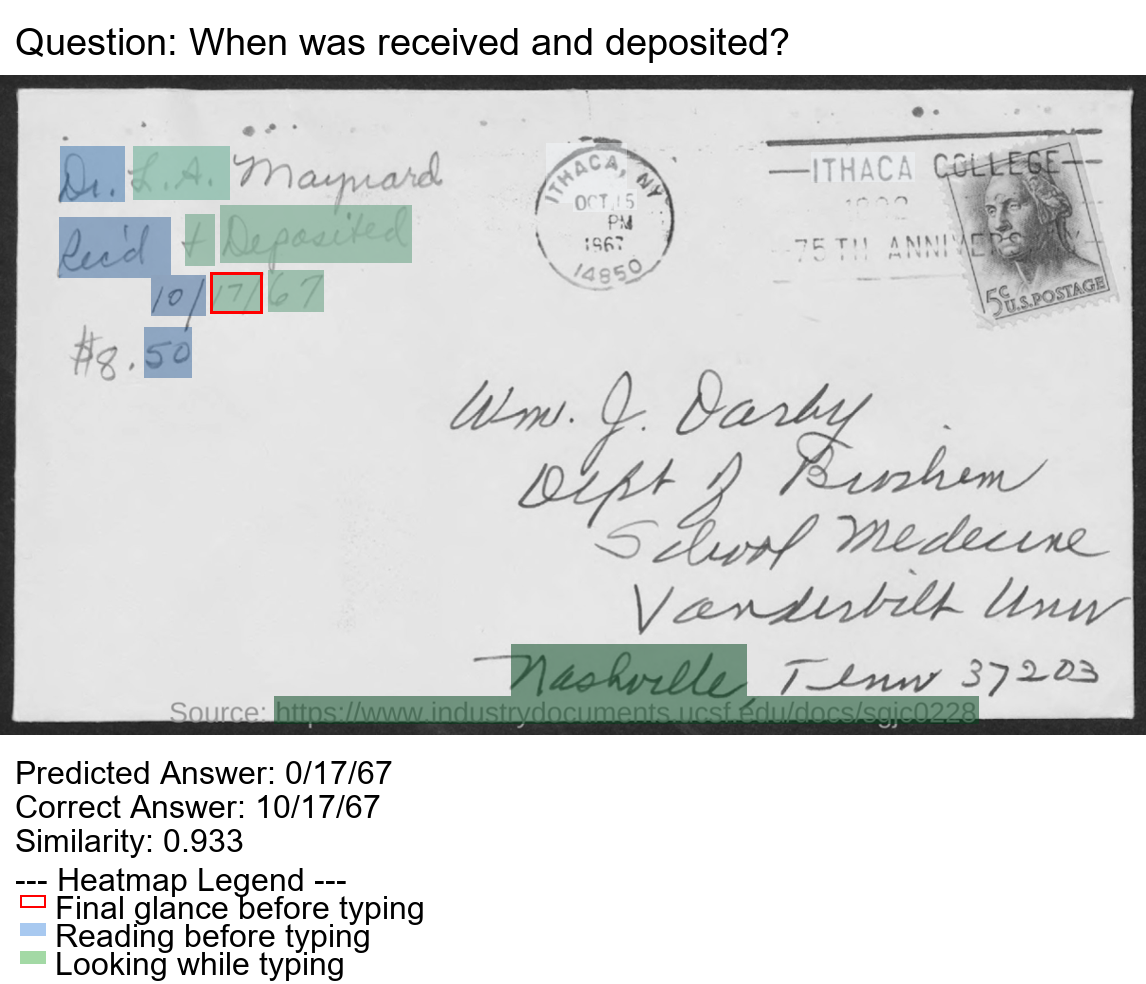 Question: When was received and deposited?
Dr. L.A. Maynard
Rec'd + Deposited
10/17/67
$8.50
ITHACA, NY
OCT 15
PM
1967
14850
ITHACA COLLEGE
75TH ANNIVERS
5c U.S. POSTAGE
Wm. J. Darby
Dept of Biochem
School Medecine
Vanderbilt Univ
Nashville, Tenn 37203
Source: https://www.industrydocuments.ucsf.edu/docs/sgjc0228
Predicted Answer: 0/17/67
Correct Answer: 10/17/67
Similarity: 0.933
--- Heatmap Legend ---
Final glance before typing
Reading before typing
Looking while typing